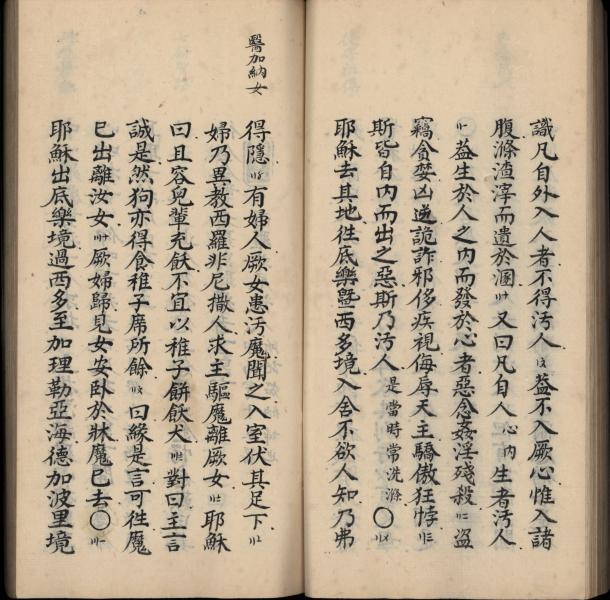 識凡自外入人者不得汚人葢不入厥心惟入諸
腹滌渣滓而遺於溷又曰凡自人心內生者汚人
葢生於人之內而發於心者惡念姦淫殘殺盜
竊貪婪凶逆詭詐邪侈疾視侮辱天主驕傲狂悖
斯皆自內而出之惡斯乃汚人是當時常洗滌〇
耶穌去其地徃底樂曁西多境入舍不欲人知乃弗
醫加納女
得隱有婦人厥女患汚魔聞之入室伏其足下
婦乃異教西羅非尼撒人求主驅魔離厥女耶穌
曰且容兒輩充飫不宜以稚子餅飫犬對曰主言
誠是然狗亦得食稚子席所餘曰緣是言可徃魔
已出離汝女厥婦歸見女安臥於牀魔已去〇
耶穌出底樂境過西多至加理勒亞海德加波里境